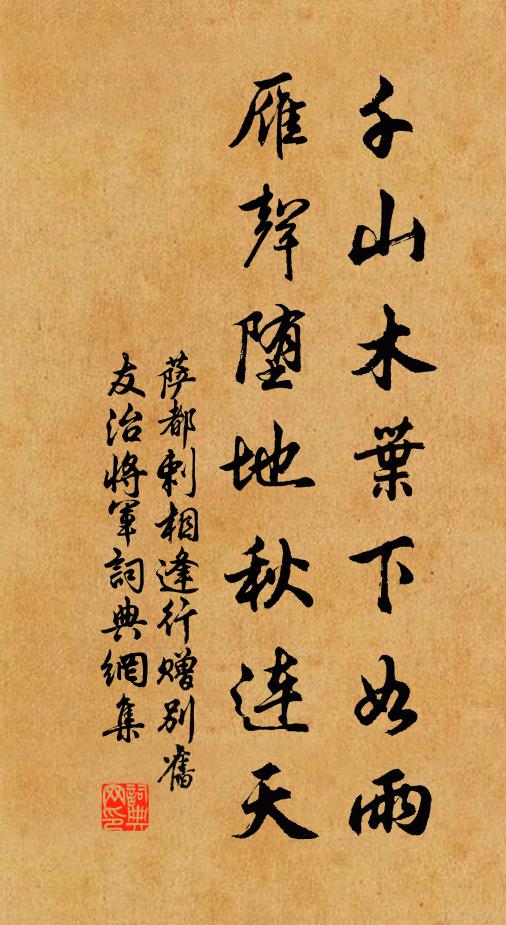 千山木葉下如雨
雁聲墮地秋連天
薩都剌相逢行贈別舊
友治將軍詞典網集
詞典網印